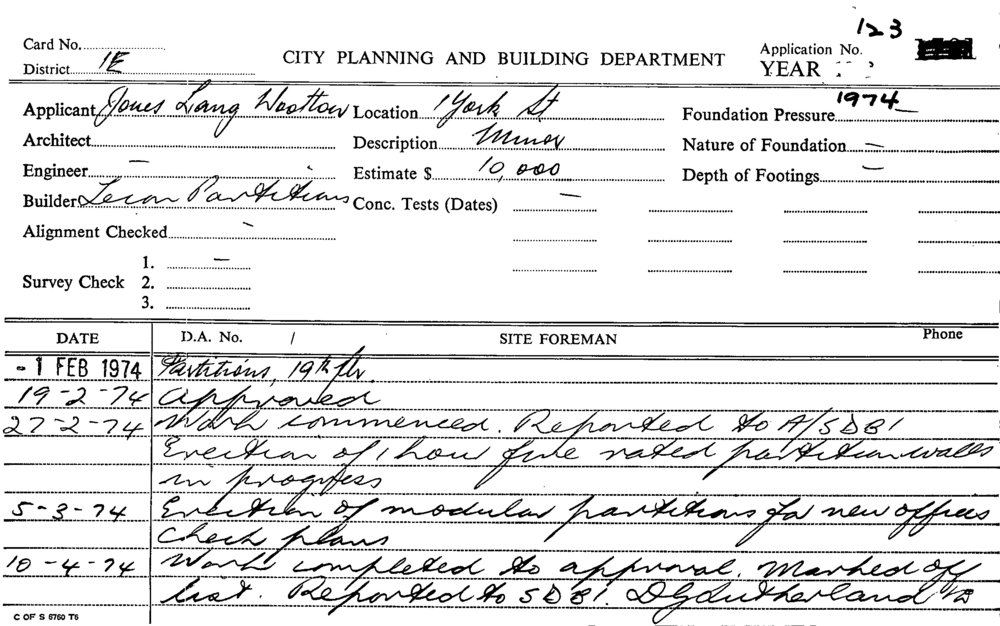 123
Card No.
Application No.
District 1E
CITY PLANNING AND BUILDING DEPARTMENT
YEAR
1974
Applicant Jones Lang Wootton Location 1 York St Foundation Pressure
Architect Description Minor Nature of Foundation –
Engineer – Estimate $ 10,000 Depth of Footings –
Builder Partitions Conc. Tests (Dates) –
Alignment Checked -
1. –
Survey Check 2.
3.
DATE D.A. No. / SITE FOREMAN Phone
- 1 FEB 1974 Partitions, 19th flr
19-2-74 Approved
27-2-74 Work commenced. Reported to A/SDBI
Erection of 1 hour fire rated partition walls
in progress
5-3-74 Erection of modular partitions for new offices
Check plans
10-4-74 Work completed to approval. Marked off
list. Reported to SDBI. DGSutherland
C OF S 5760 T6